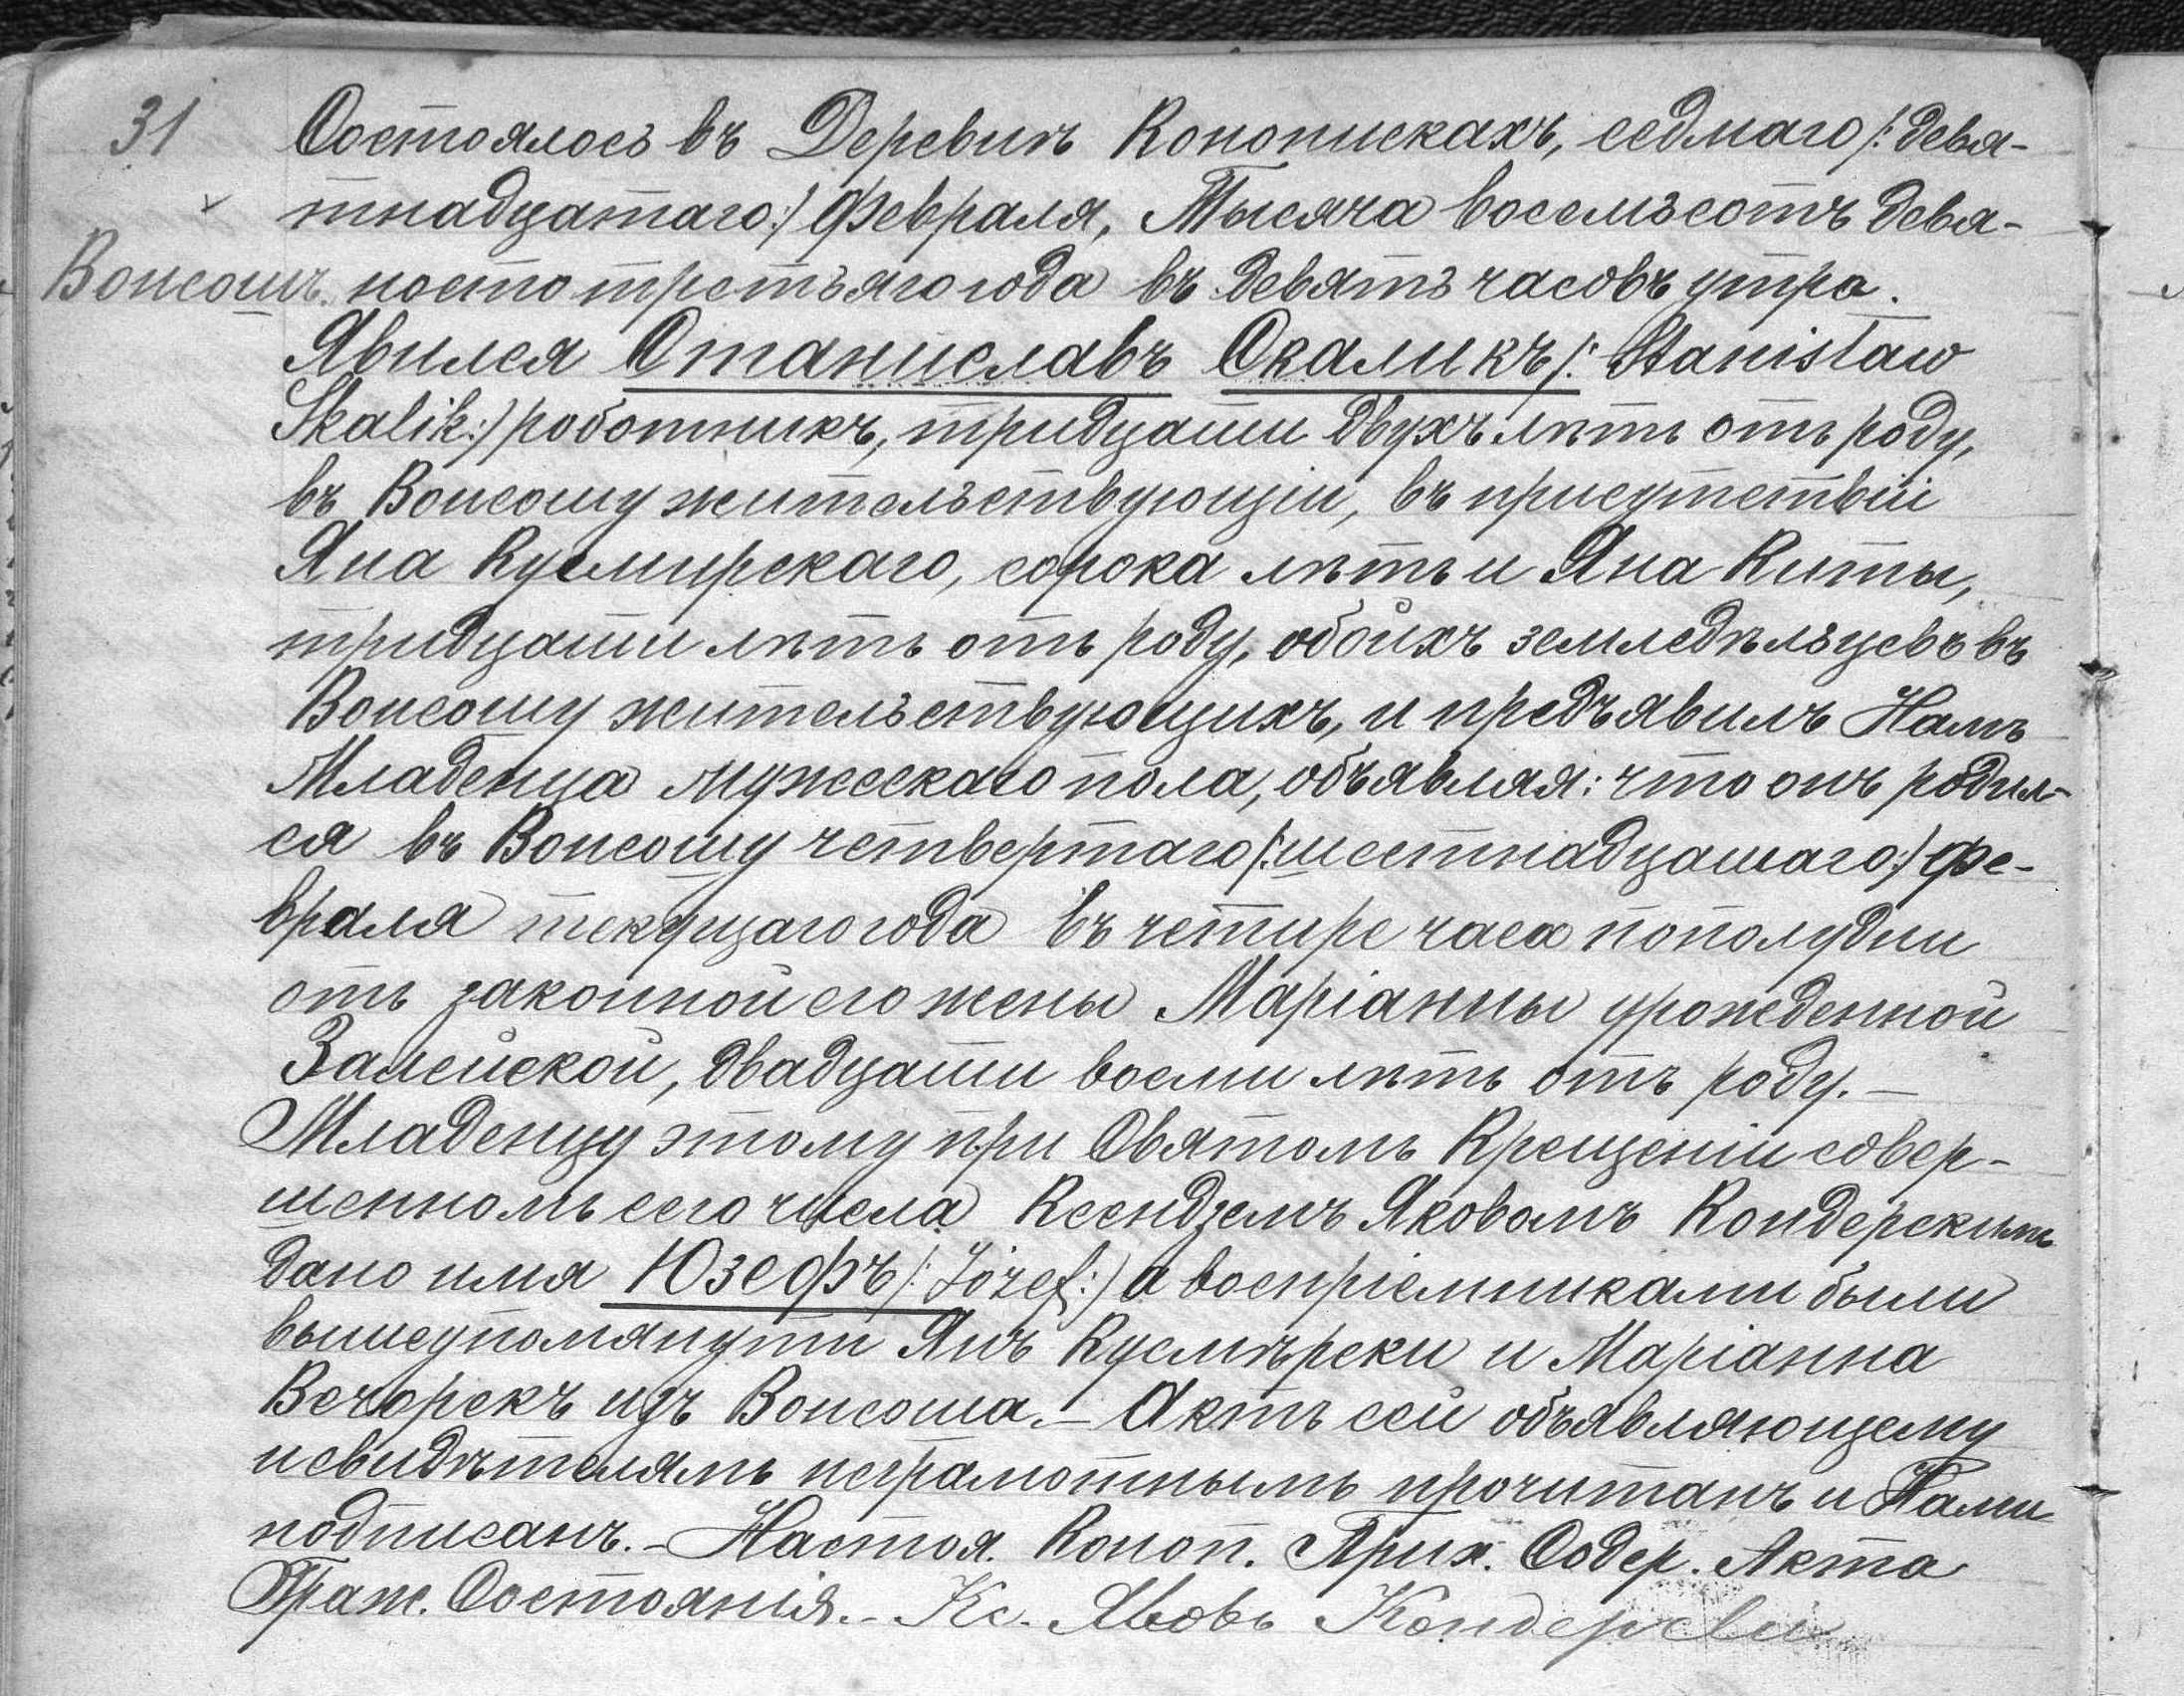 31
Вонсошъ
Состоялось въ Деревнѣ Конопискахъ, седмаго /: девя-
тнадцатаго :/ Февраля, Тысяча восемьсотъ девя-
носто третьяго года въ девять часовъ утра.
Явился Станиславъ Скаликъ /: Stanisław
Skalik :/ роботникъ, тридцати двухъ лѣтъ отъ роду,
въ Вонсошу жительствующіи, въ присутствіи
Яна Кусмирскаго, сорока лѣтъ и Яна Киты,
тридцати лѣтъ отъ роду, обоихъ земледѣльцевъ въ
Вонсошу жительствующихъ, и предъявилъ Намъ
Младенца мужескаго пола, объявляя: что онъ родил-
ся въ Вонсошу четвертаго /: шестнадцатаго :/ Фе-
враля текущаго года въ четире часа пополудни
отъ законной его жены Маріанны урожденной
Залейской, двадцати восми лѣтъ отъ роду. —
Младенцу этому при Святомъ Крещеніи совер-
шенномъ сего числа Ксендземъ Яковомъ Кондерскимъ
дано имя Юзефъ /: Józef :/ а воспріемниками были
вышеупомянути Янъ Кусмѣрски и Маріанна
Вечорекъ изъ Вонсоша. — Актъ сей объявляющему
и свидѣтелямъ неграмотнымъ прочитанъ и Нами
подписанъ. — Настоя. Коноп. Прих. Содер. Акта
Граж. Состоянія. — Кс. Яковъ Кондерскій